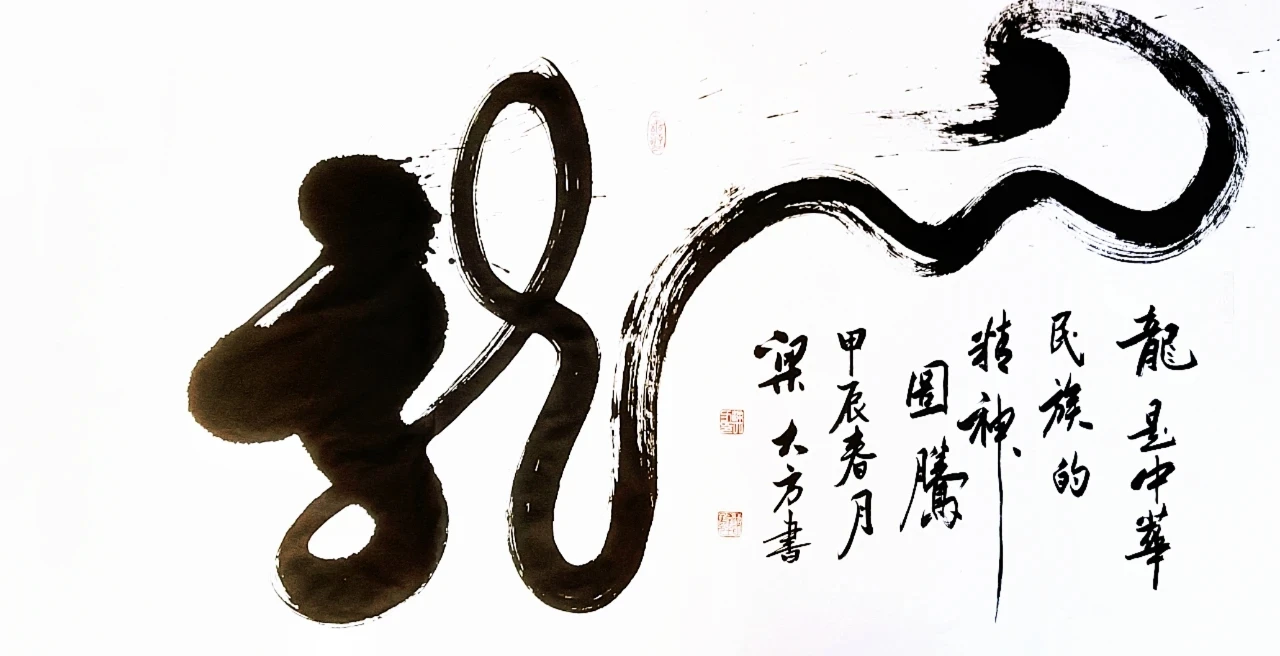 龍
龍是中華
民族的
精神、
圖騰
甲辰春月
梁大方書